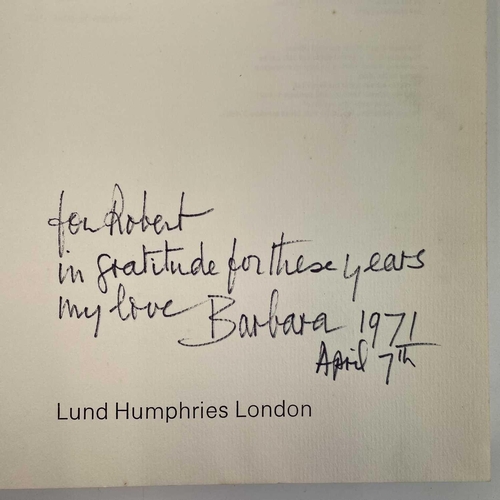 for Robert
in gratitude for these years
my love Barbara 1971
April 7th
Lund Humphries London